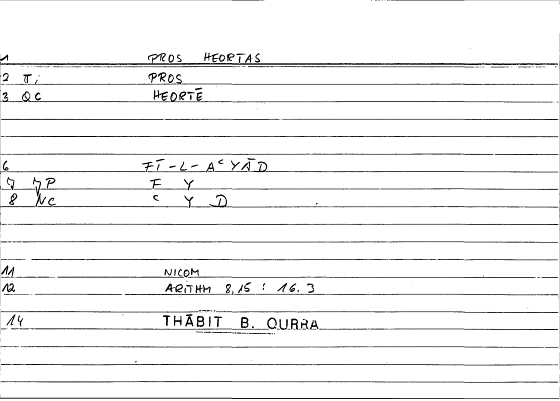 1 PROS HEORTAS
2 Ti PROS
3 QC HEORTĒ
6 FĪ-L-AʿYĀD
7 7P F Y
8 NC ʿ Y D
11 NICOM
12 ARITHM 8,15 : 16.3
14 THĀBIT B. QURRA